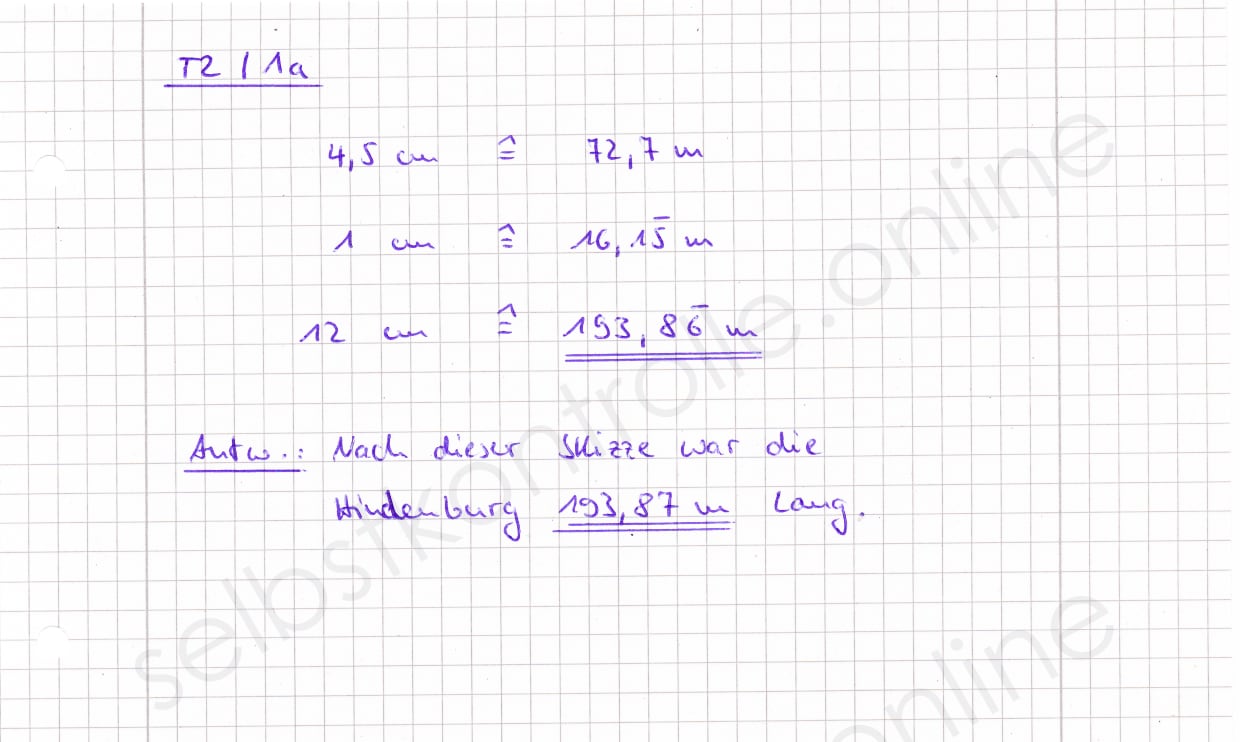 T2 / 1a
4,5 cm ≙ 72,7 m
1 cm ≙ 16,15̅ m
12 cm ≙ 193,86̅ m
Antw.: Nach dieser Skizze war die
Hindenburg 193,87 m lang.
selbstkontrolle.online
online